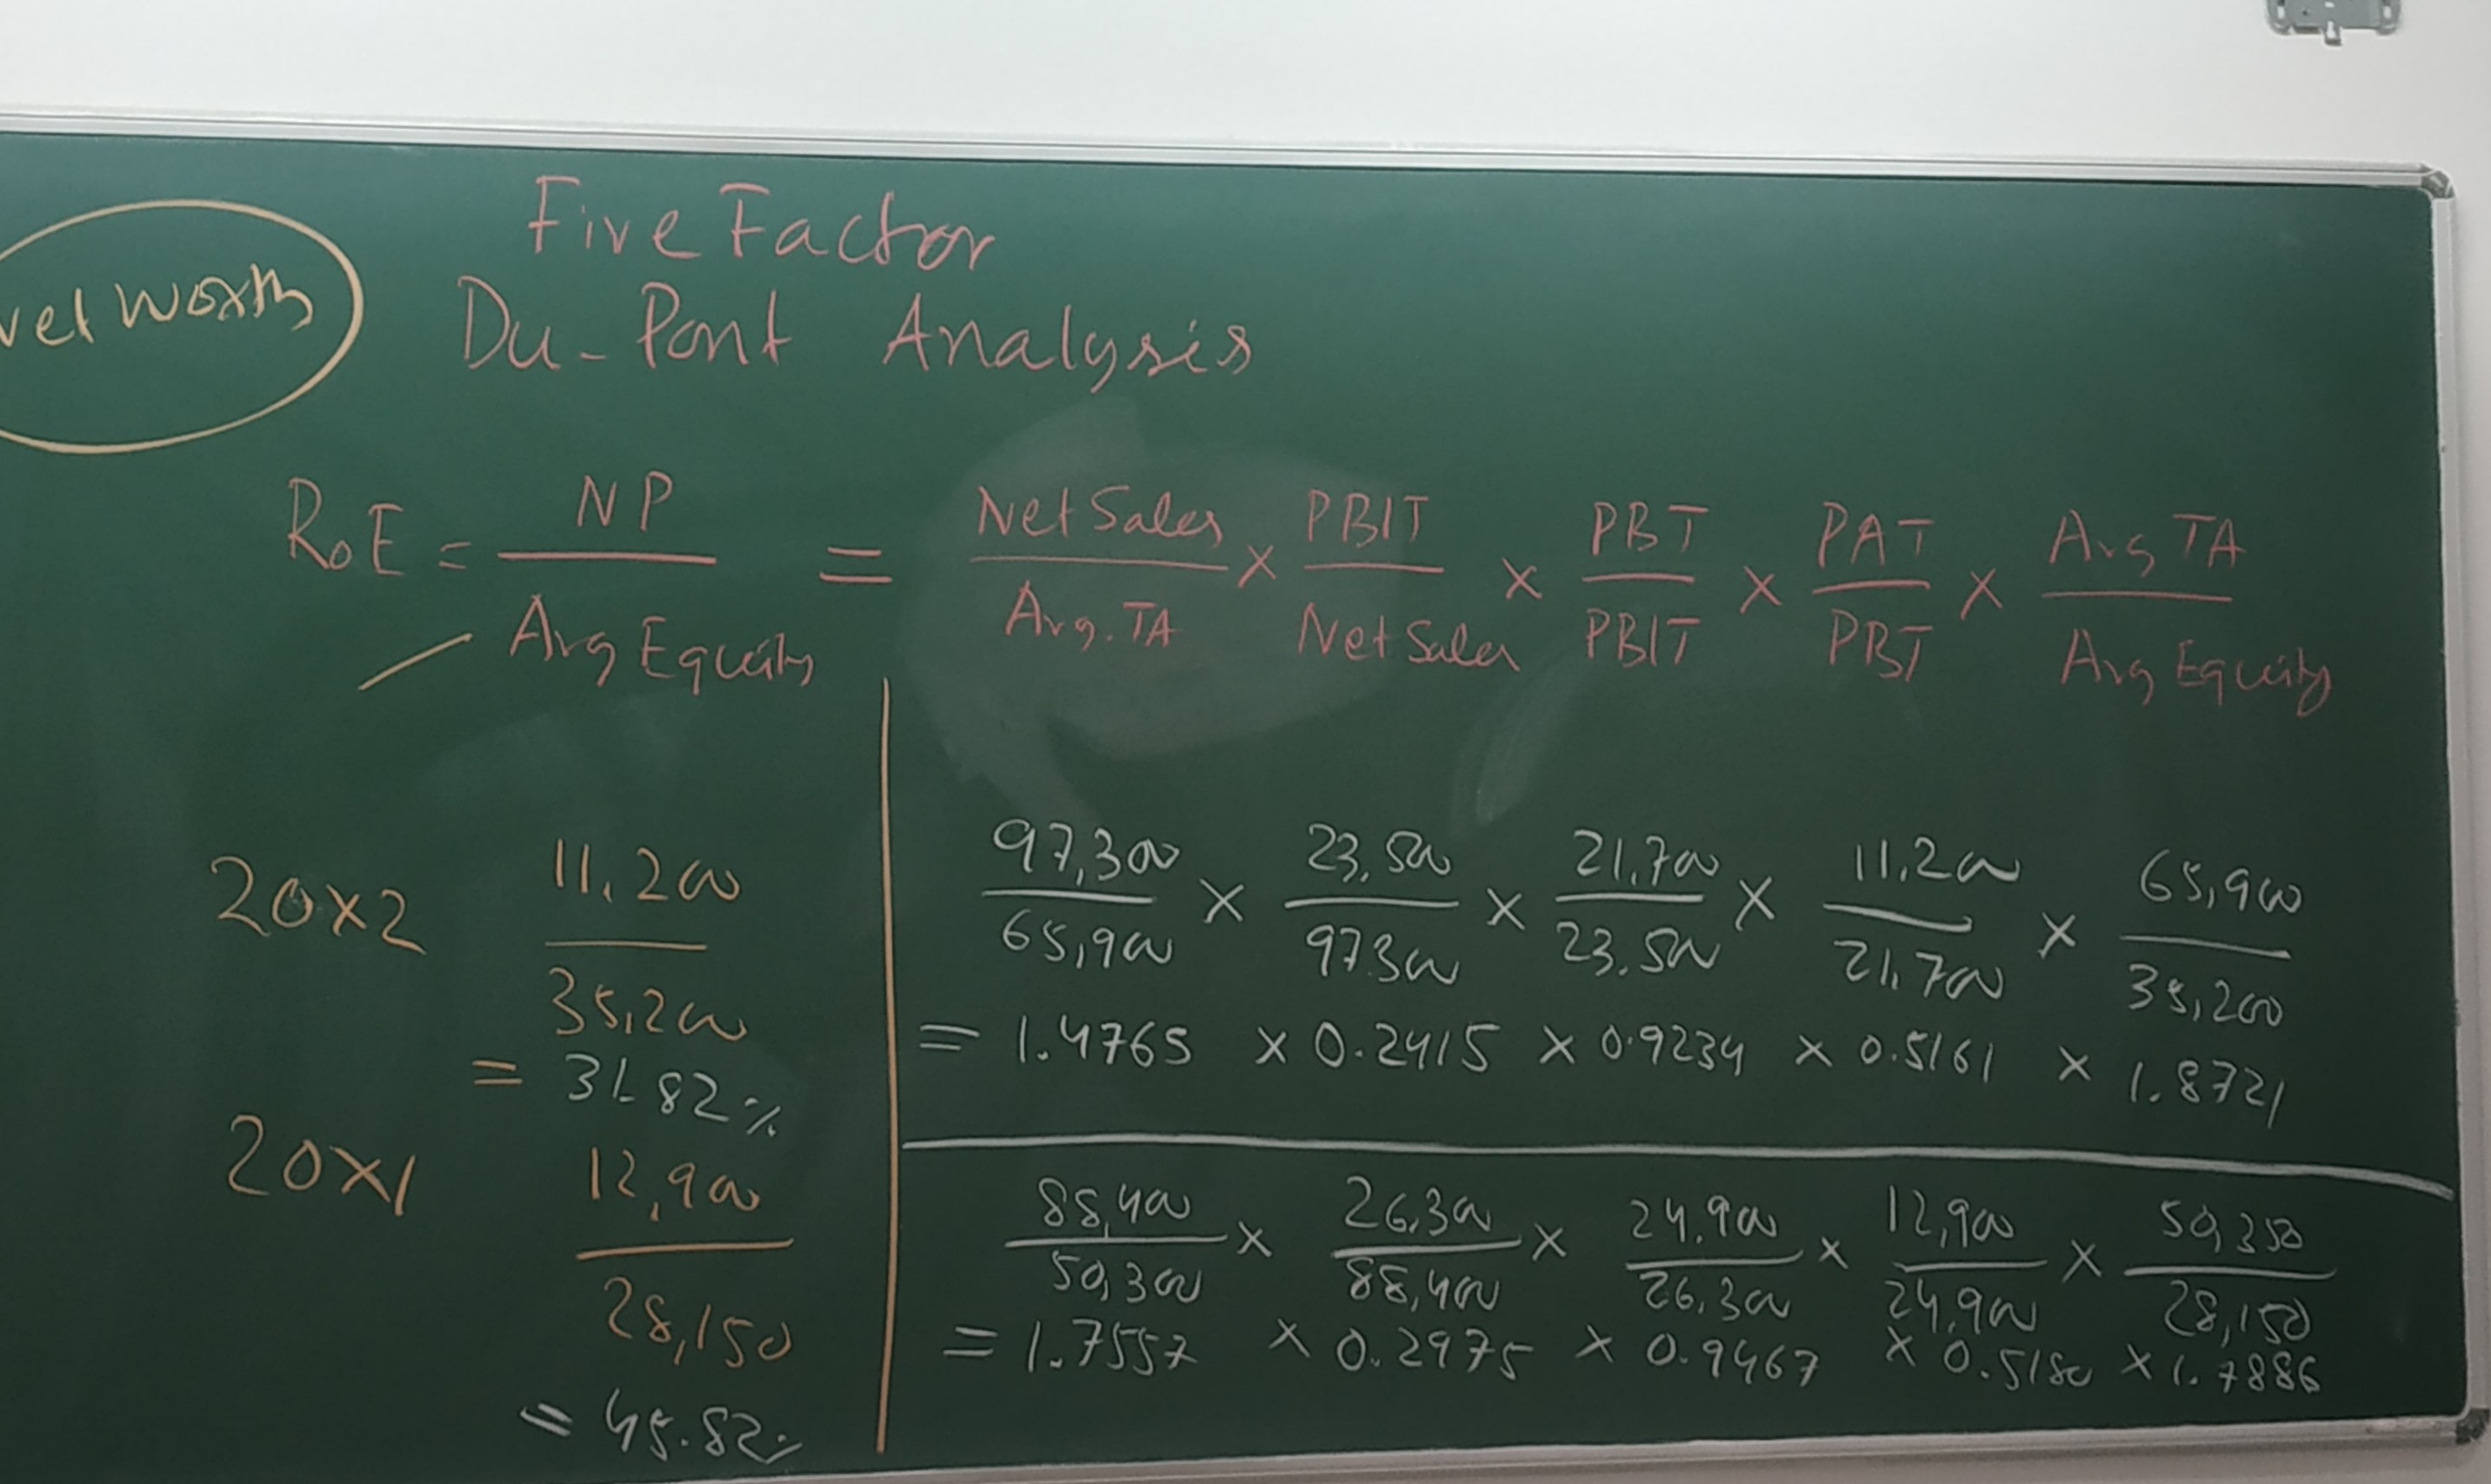 Five Factor
Net Worth
Du-Pont Analysis
RoE = NP / Avg Equity = Net Sales / Avg. TA × PBIT / Net Sales × PBT / PBIT × PAT / PBT × Avg TA / Avg Equity
20x2 11,200 / 35,200 = 31.82%
97,300 / 65,900 × 23,500 / 97300 × 21,700 / 23,500 × 11,200 / 21,700 × 65,900 / 35,200
= 1.4765 × 0.2415 × 0.9234 × 0.5161 × 1.8721
20x1 12,900 / 28,150 = 45.82%
88,400 / 50,300 × 26,300 / 88,400 × 24,900 / 26,300 × 12,900 / 24,900 × 50,350 / 28,150
= 1.7557 × 0.2975 × 0.9467 × 0.5180 × 1.7886